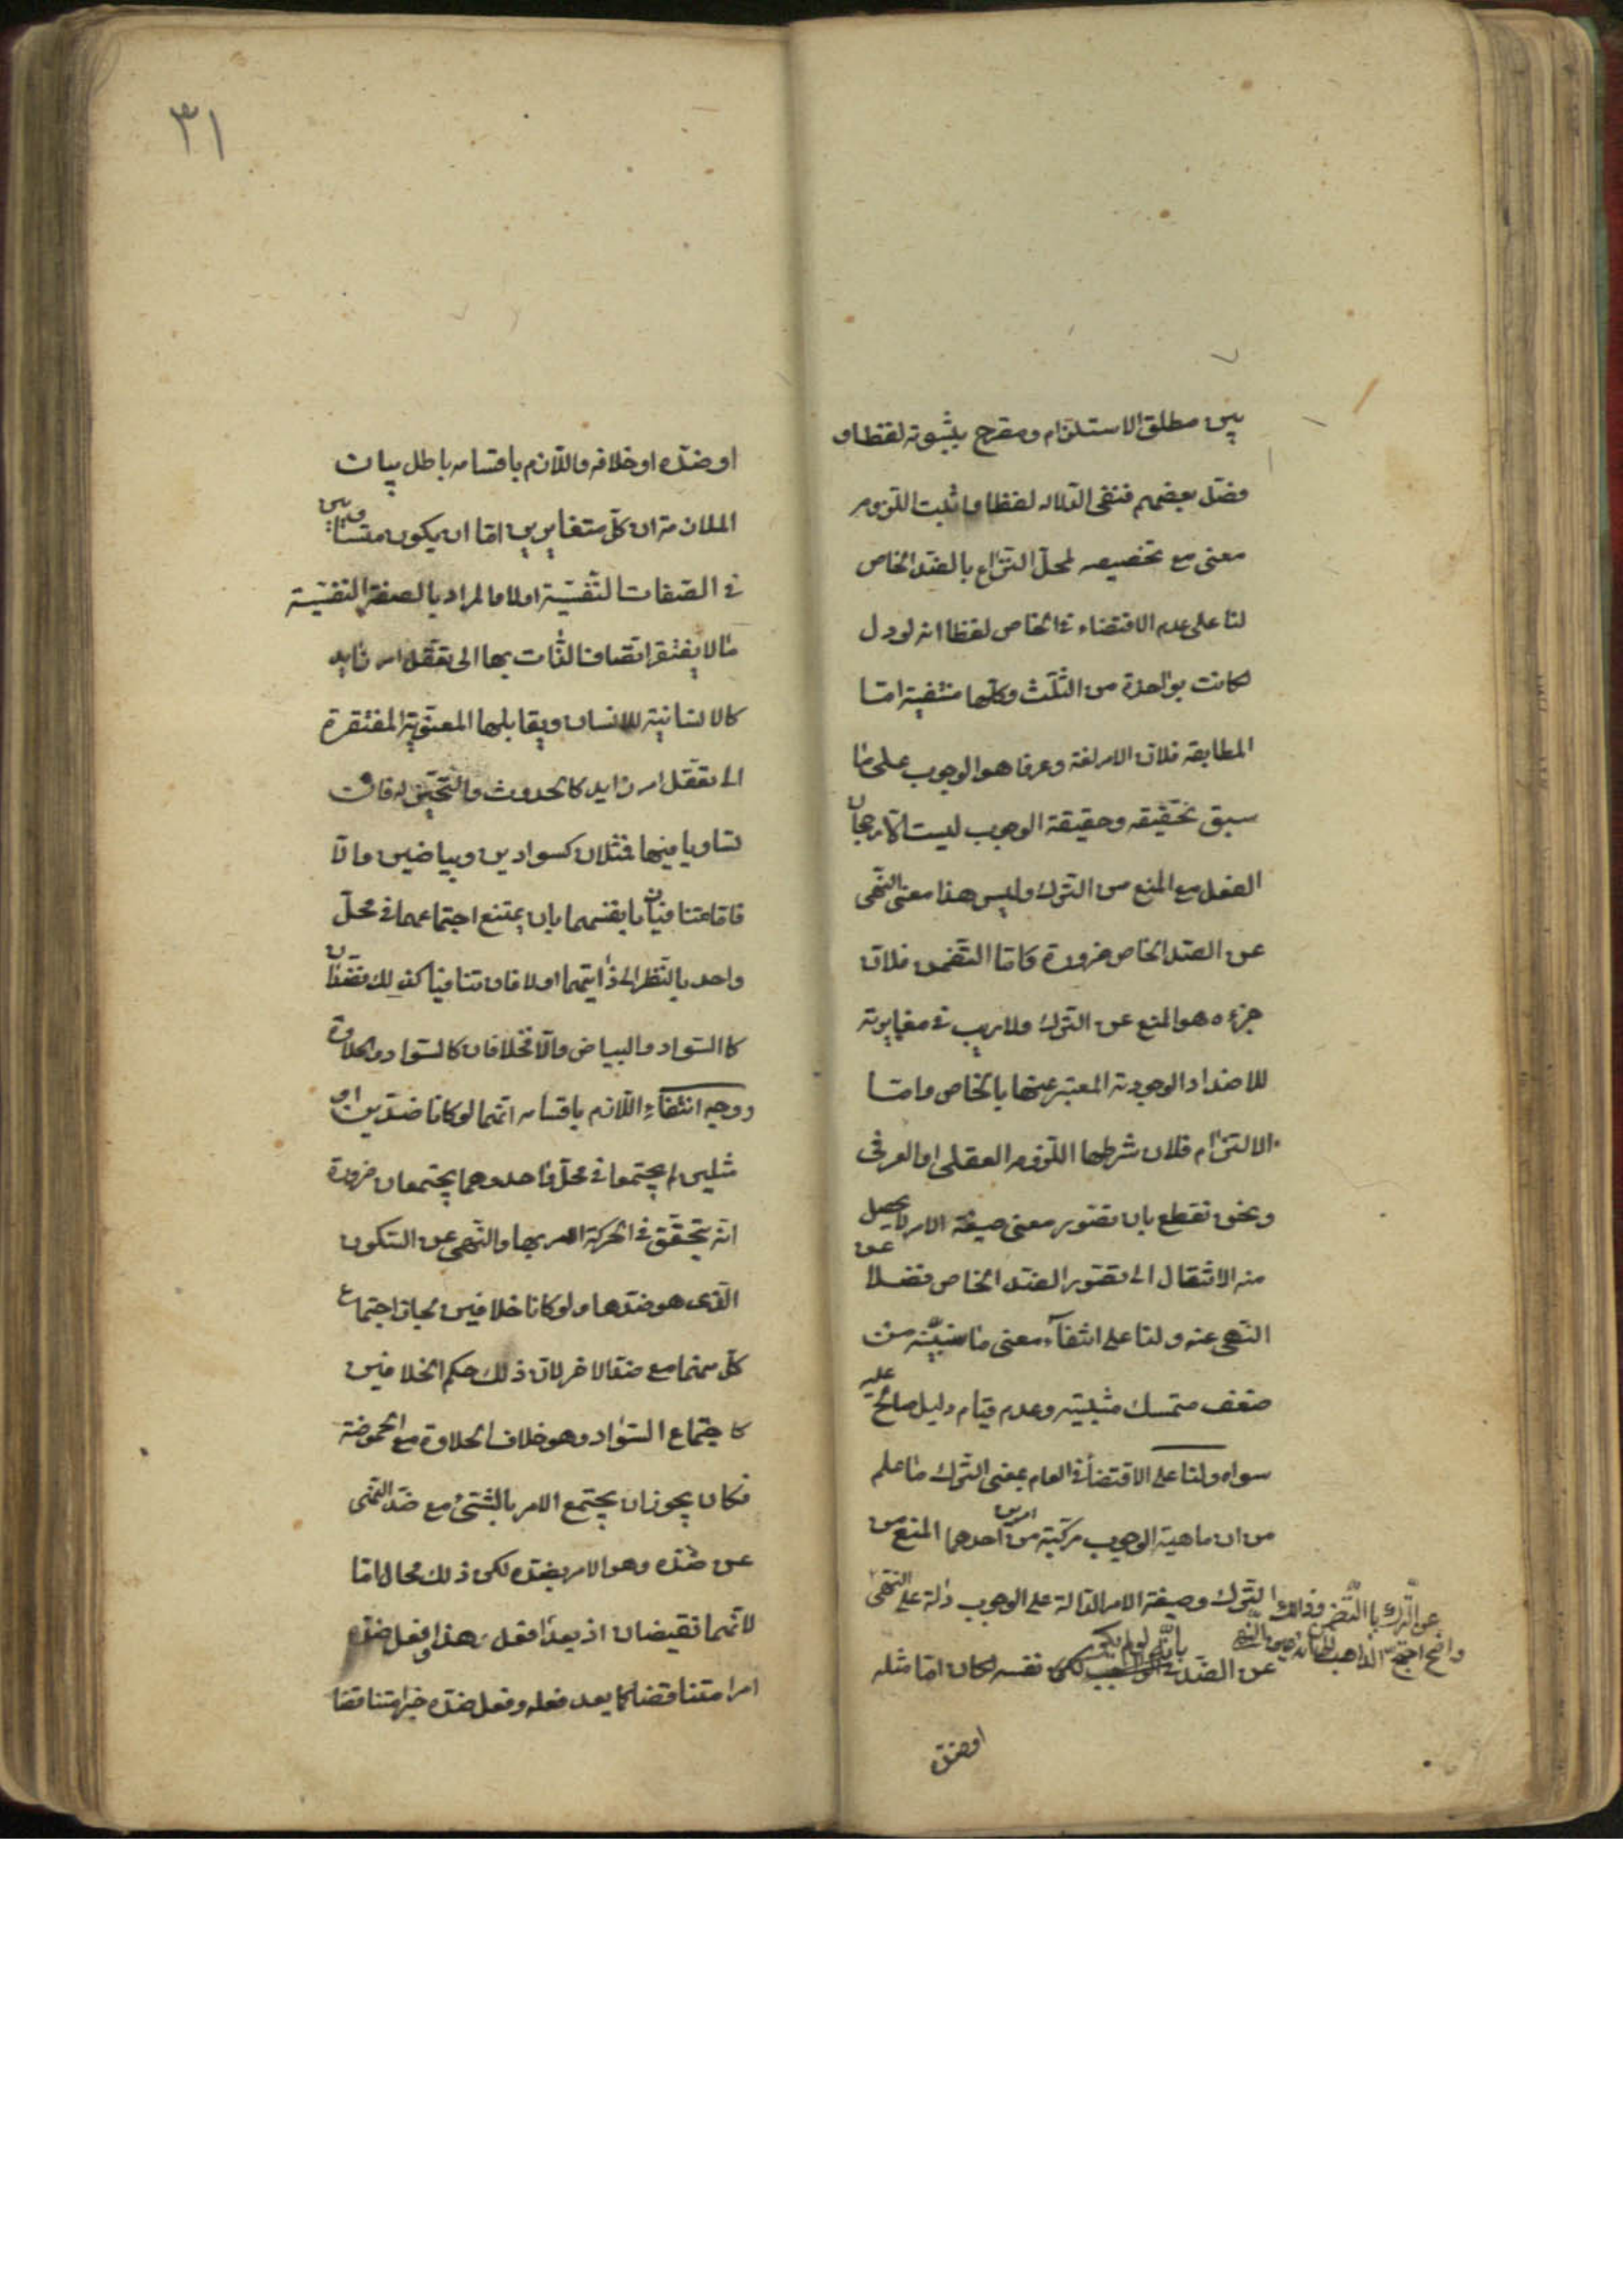 بين مطلق الاستلزام ومصرح بثبوته لفظا و
فصل بعضهم فنفى الدلالة لفظا واثبت اللزوم
معنى مع تخصيصه لمحل النزاع بالضد الخاص
لنا على عدم الاقتضاء في الخاص لفظا انه لو دل
لكانت بواحدة من الثلث وكلها منتفية امتا
المطابقة فلان الامر لغة وعرفا هو الوجوب على ما
سبق تحقيقه وحقيقة الوجوب ليست الا رجحان
الفعل مع المنع من الترك وليس هذا معنى النهى
عن الضد الخاص ضرورة واما التضمن فلان
جزءه هو المنع عن الترك ولا ريب في مغايرته
للاضداد الوجودية المعتبر عنها بالخاص وامتا
الالتزام فلان شرطها اللزوم العقلى او العرفى
ونحن نقطع بان تصور معنى صيغة الامر لا يحصل
منه الانتقال الى تصور الضد الخاص فضلا عن
النهى عنه ولنا على انتفاء معنى ما سنبينه من
ضعف متمسك مثبتيه وعدم قيام دليل صالح عليه
سواه ولنا على الاقتضاء في العام بمعنى الترك ما علم
من ان ماهية الوجوب مركبة من امرين احدهما المنع من
الترك وصيغة الامر الدالة على الوجوب دالة على النهى
عن الترك با التضمن وذلك
واضح احتج الذاهب الى انه عين النهى
عن الضد بانه لو لم يكن نفسه لكان اما مثله
او ضده
٣١
او ضده او خلافه واللازم باقسامه باطل بيان
الملازمة ان كل متغايرين اما ان يكون متساويين
في الصفات النفسية اولا والمراد بالصفة النفسية
ما لا يفتقر اتصاف الذات بها الى تعقل امر زايد
كالانسانية للانسان ويقابلها المعنوية المفتقرة
الى تعقل امر زايد كالحدوث والتحيز له فان
تساويا فيها فمثلان كسوادين وبياضين والا
فاما يتنافيان بانفسهما بان يمتنع اجتماعهما في محل
واحد بالنظر الى ذاتيهما اولا فان تنافيا كذلك فضدان
كا السواد والبياض والا فخلافان كالسواد والحلاوة
ووجه انتفاء اللازم باقسامه انهما لو كانا ضدين او
مثلين لم يجتمعا في محل واحد وهما يجتمعان ضرورة
انه يتحقق في الحركة الامر بها والنهى عن السكون
الذى هو ضدها ولو كانا خلافين لجاز اجتماع
كل منهما مع ضد الاخر لان ذلك حكم الخلافين
كا جتماع السواد وهو خلاف الحلاوة مع الحموضة
فكان يجوز ان يجتمع الامر بالشئ مع ضد النهى
عن ضده وهو الامر بضده لكن ذلك محال اما
لانهما نقيضان اذ يعد افعل هذا وافعل ضده
امرا متناقضا كما يعد فعله وفعل ضده خبرا متناقضا